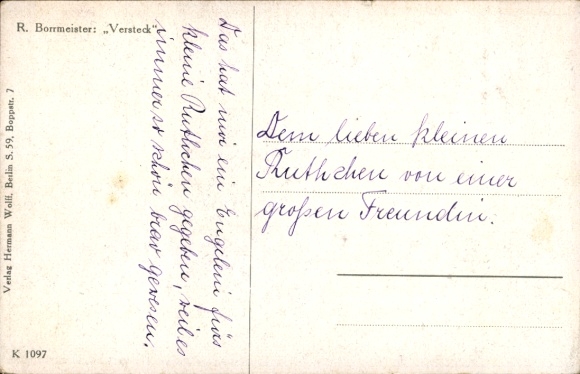 R. Borrmeister: „Versteck"
Das hat mir ein Engelein fürs
kleine Ruthchen gegeben, weil es
immer so schön brav gewesen.
Dem lieben kleinen
Ruthchen von einer
großen Freundin.
Verlag Hermann Wolff, Berlin S. 59, Boppstr. 7
K 1097